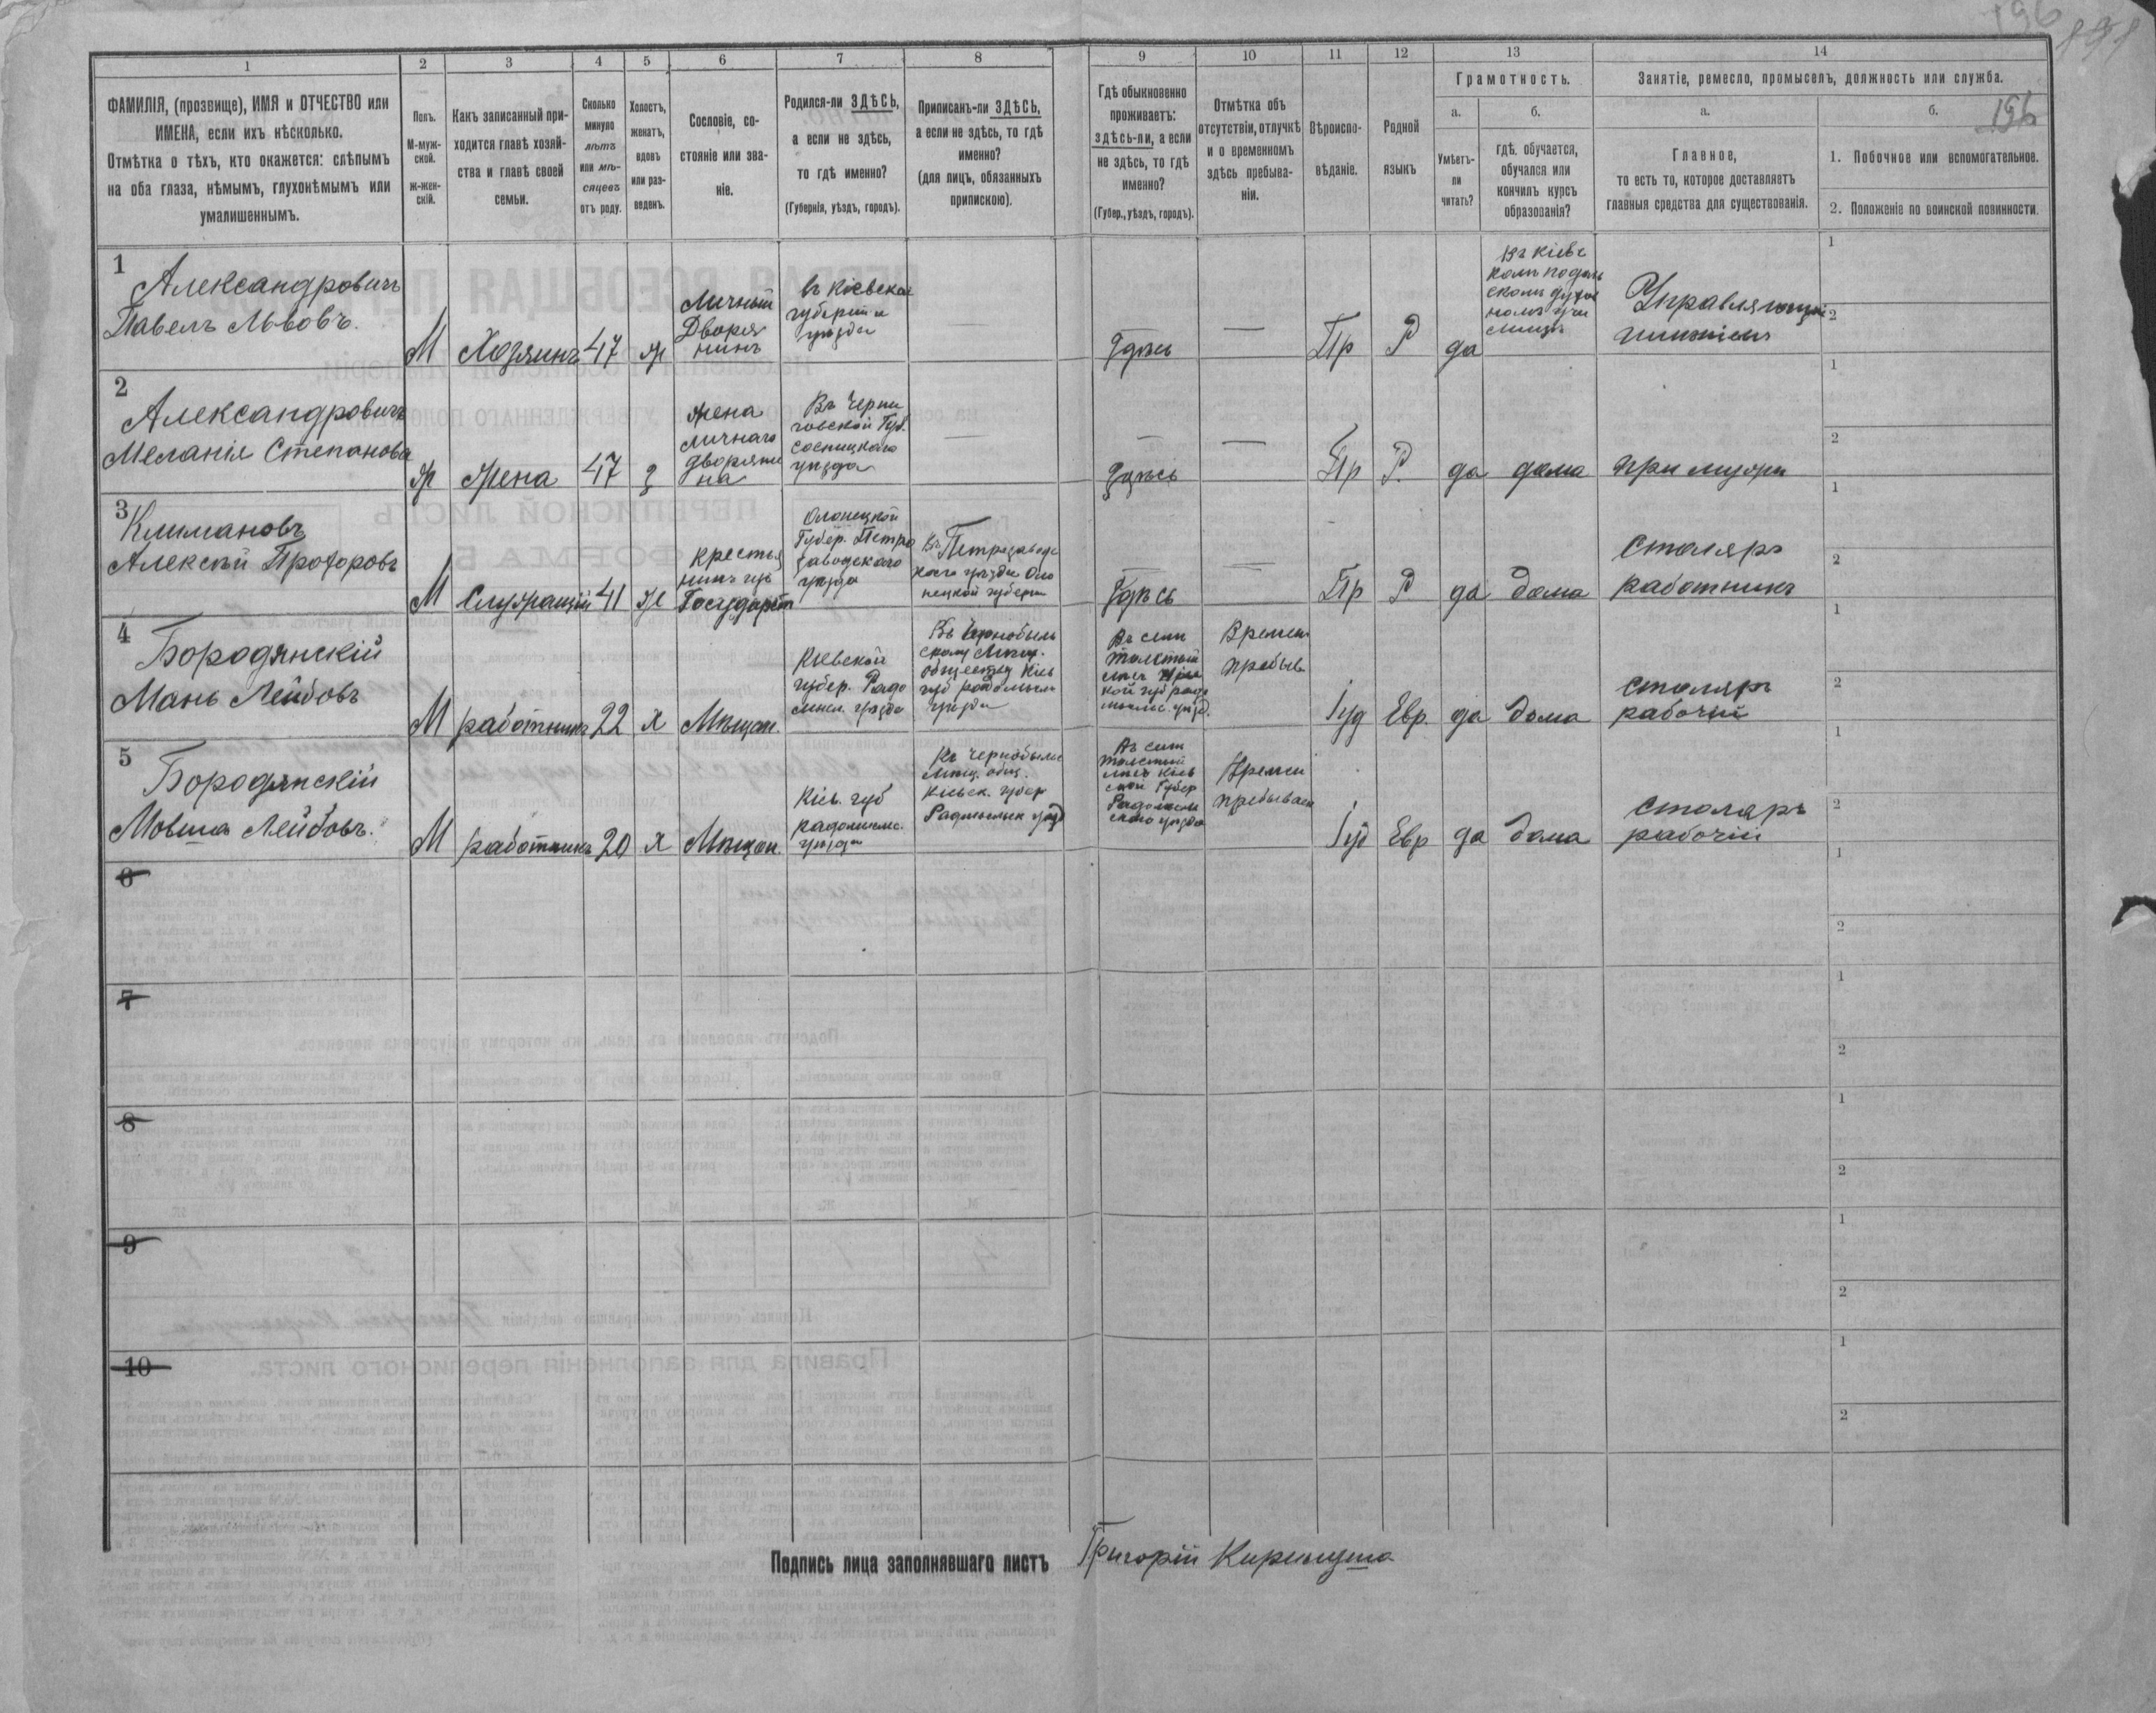 196
1
ФАМИЛІЯ, (прозвище), ИМЯ и ОТЧЕСТВО или
ИМЕНА, если ихъ нѣсколько.
Отмѣтка о тѣхъ, кто окажется: слѣпымъ
на оба глаза, нѣмымъ, глухонѣмымъ или
умалишеннымъ.
2
Полъ.
М-муж-
ской.
Ж-жен-
скій.
3
Какъ записанный при-
ходится главѣ хозяй-
ства и главѣ своей
семьи.
4
Сколько
минуло
лѣтъ
или мѣ-
сяцевъ
отъ роду.
5
Холостъ,
женатъ,
вдовъ
или раз-
веденъ.
6
Сословіе, со-
стояніе или зва-
ніе.
7
Родился-ли ЗДѢСЬ,
а если не здѣсь,
то гдѣ именно?
(Губернія, уѣздъ, городъ).
8
Приписанъ-ли ЗДѢСЬ,
а если не здѣсь, то гдѣ
именно?
(для лицъ, обязанныхъ
припискою).
9
Гдѣ обыкновенно
проживаетъ:
здѣсь-ли, а если
не здѣсь, то гдѣ
именно?
(Губер., уѣздъ, городъ).
10
Отмѣтка объ
отсутствіи, отлучкѣ
и о временномъ
здѣсь пребыва-
ніи.
11
Вѣроиспо-
вѣданіе.
12
Родной
языкъ
13
Грамотность.
а.
Умѣетъ-
ли
читать?
б.
гдѣ. обучается,
обучался или
кончилъ курсъ
образованія?
14
Занятіе, ремесло, промыселъ, должность или служба.
а.
Главное,
то есть то, которое доставляетъ
главныя средства для существованія.
б.
196
1. Побочное или вспомогательное.
2. Положеніе по воинской повинности.
1
Александровичъ
Павелъ Львовъ.
М
Хозяинъ
47
ж
Личный
Дворя
нинъ
Въ Кіевской
губерніи
уѣзда
Здѣсь
—
Пр
Р
да
Въ Кіевѣ
Управляющій
имѣніемъ
1
2
2
Александровичъ
Меланія Степанова
Ж
Жена
47
з
жена
личнаго
дворяни
на
Въ Черни
говской Губ.
Сосницкаго
уѣзда
—
Здѣсь
—
Пр
Р.
да
дома
при мужѣ
1
2
3
Климановъ
Алексѣй Прохоровъ
М
Служащій
41
ж
крестья
нинъ изъ
Государст
Олонецкой
Губер. Петро
заводскаго
уѣзда
Въ Петрозаводс
каго уѣзда Оло
нецкой губерн
Здѣсь
—
Пр
Р
да
дома
Столяръ
работникъ
1
2
4
Бородянскій
Мань Лейбовъ
М
работникъ
22
х
Мѣщан.
Кіевской
губер. Радо
мысл. уѣзда
Въ Чернобыль
скому Мѣщ.
обществу Кіев
губ радомысл
уѣзда
Времен
пребыв
Іуд
Евр.
да
дома
столяръ
рабочій
1
2
5
Бородянскій
Мовша Лейбовъ.
М
работникъ
20
х
Мѣщан.
Кіев. губ
радомысл.
уѣзда
Къ Чернобыль
Мѣщ. общ.
Кіевск. губер
Радомысльск уѣзд
Времен
пребываетъ
Іуд
Евр
да
дома
Столяръ
рабочій
1
2
6
1
2
7
1
2
8
1
2
9
1
2
10
1
2
Подпись лица заполнявшаго листъ
Григорій